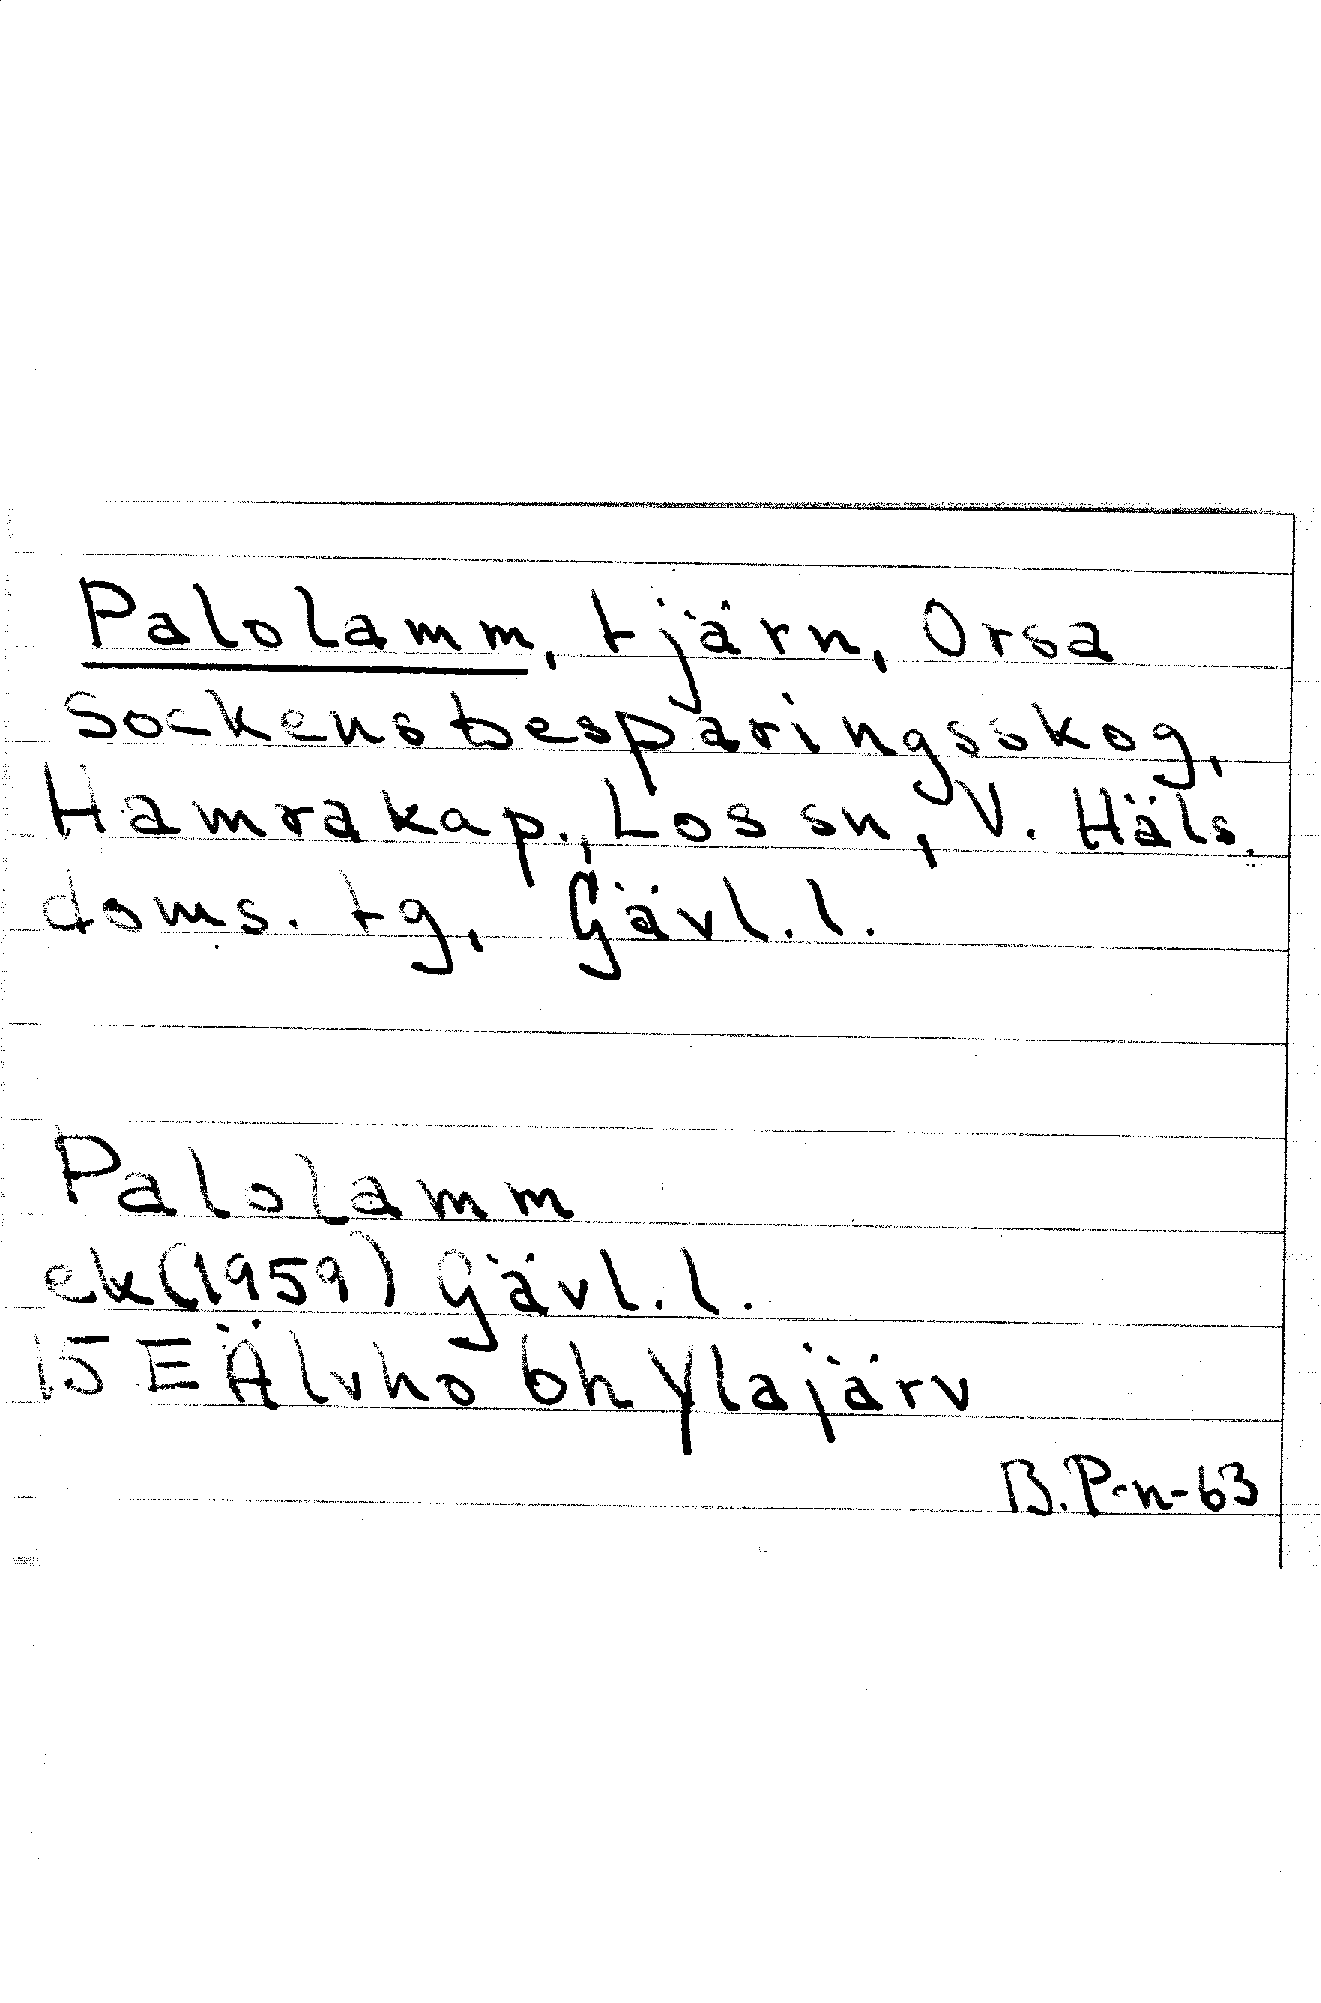 Palolamm, tjärn, Orsa
Sockensbesparingsskog,
Hamrakap., Los sn, V. Häls.
doms. tg, Gävl. l.
Palolamm
ek (1959) Gävl. l.
15 E Älvho 6h Ylajärv
B. P-n-63